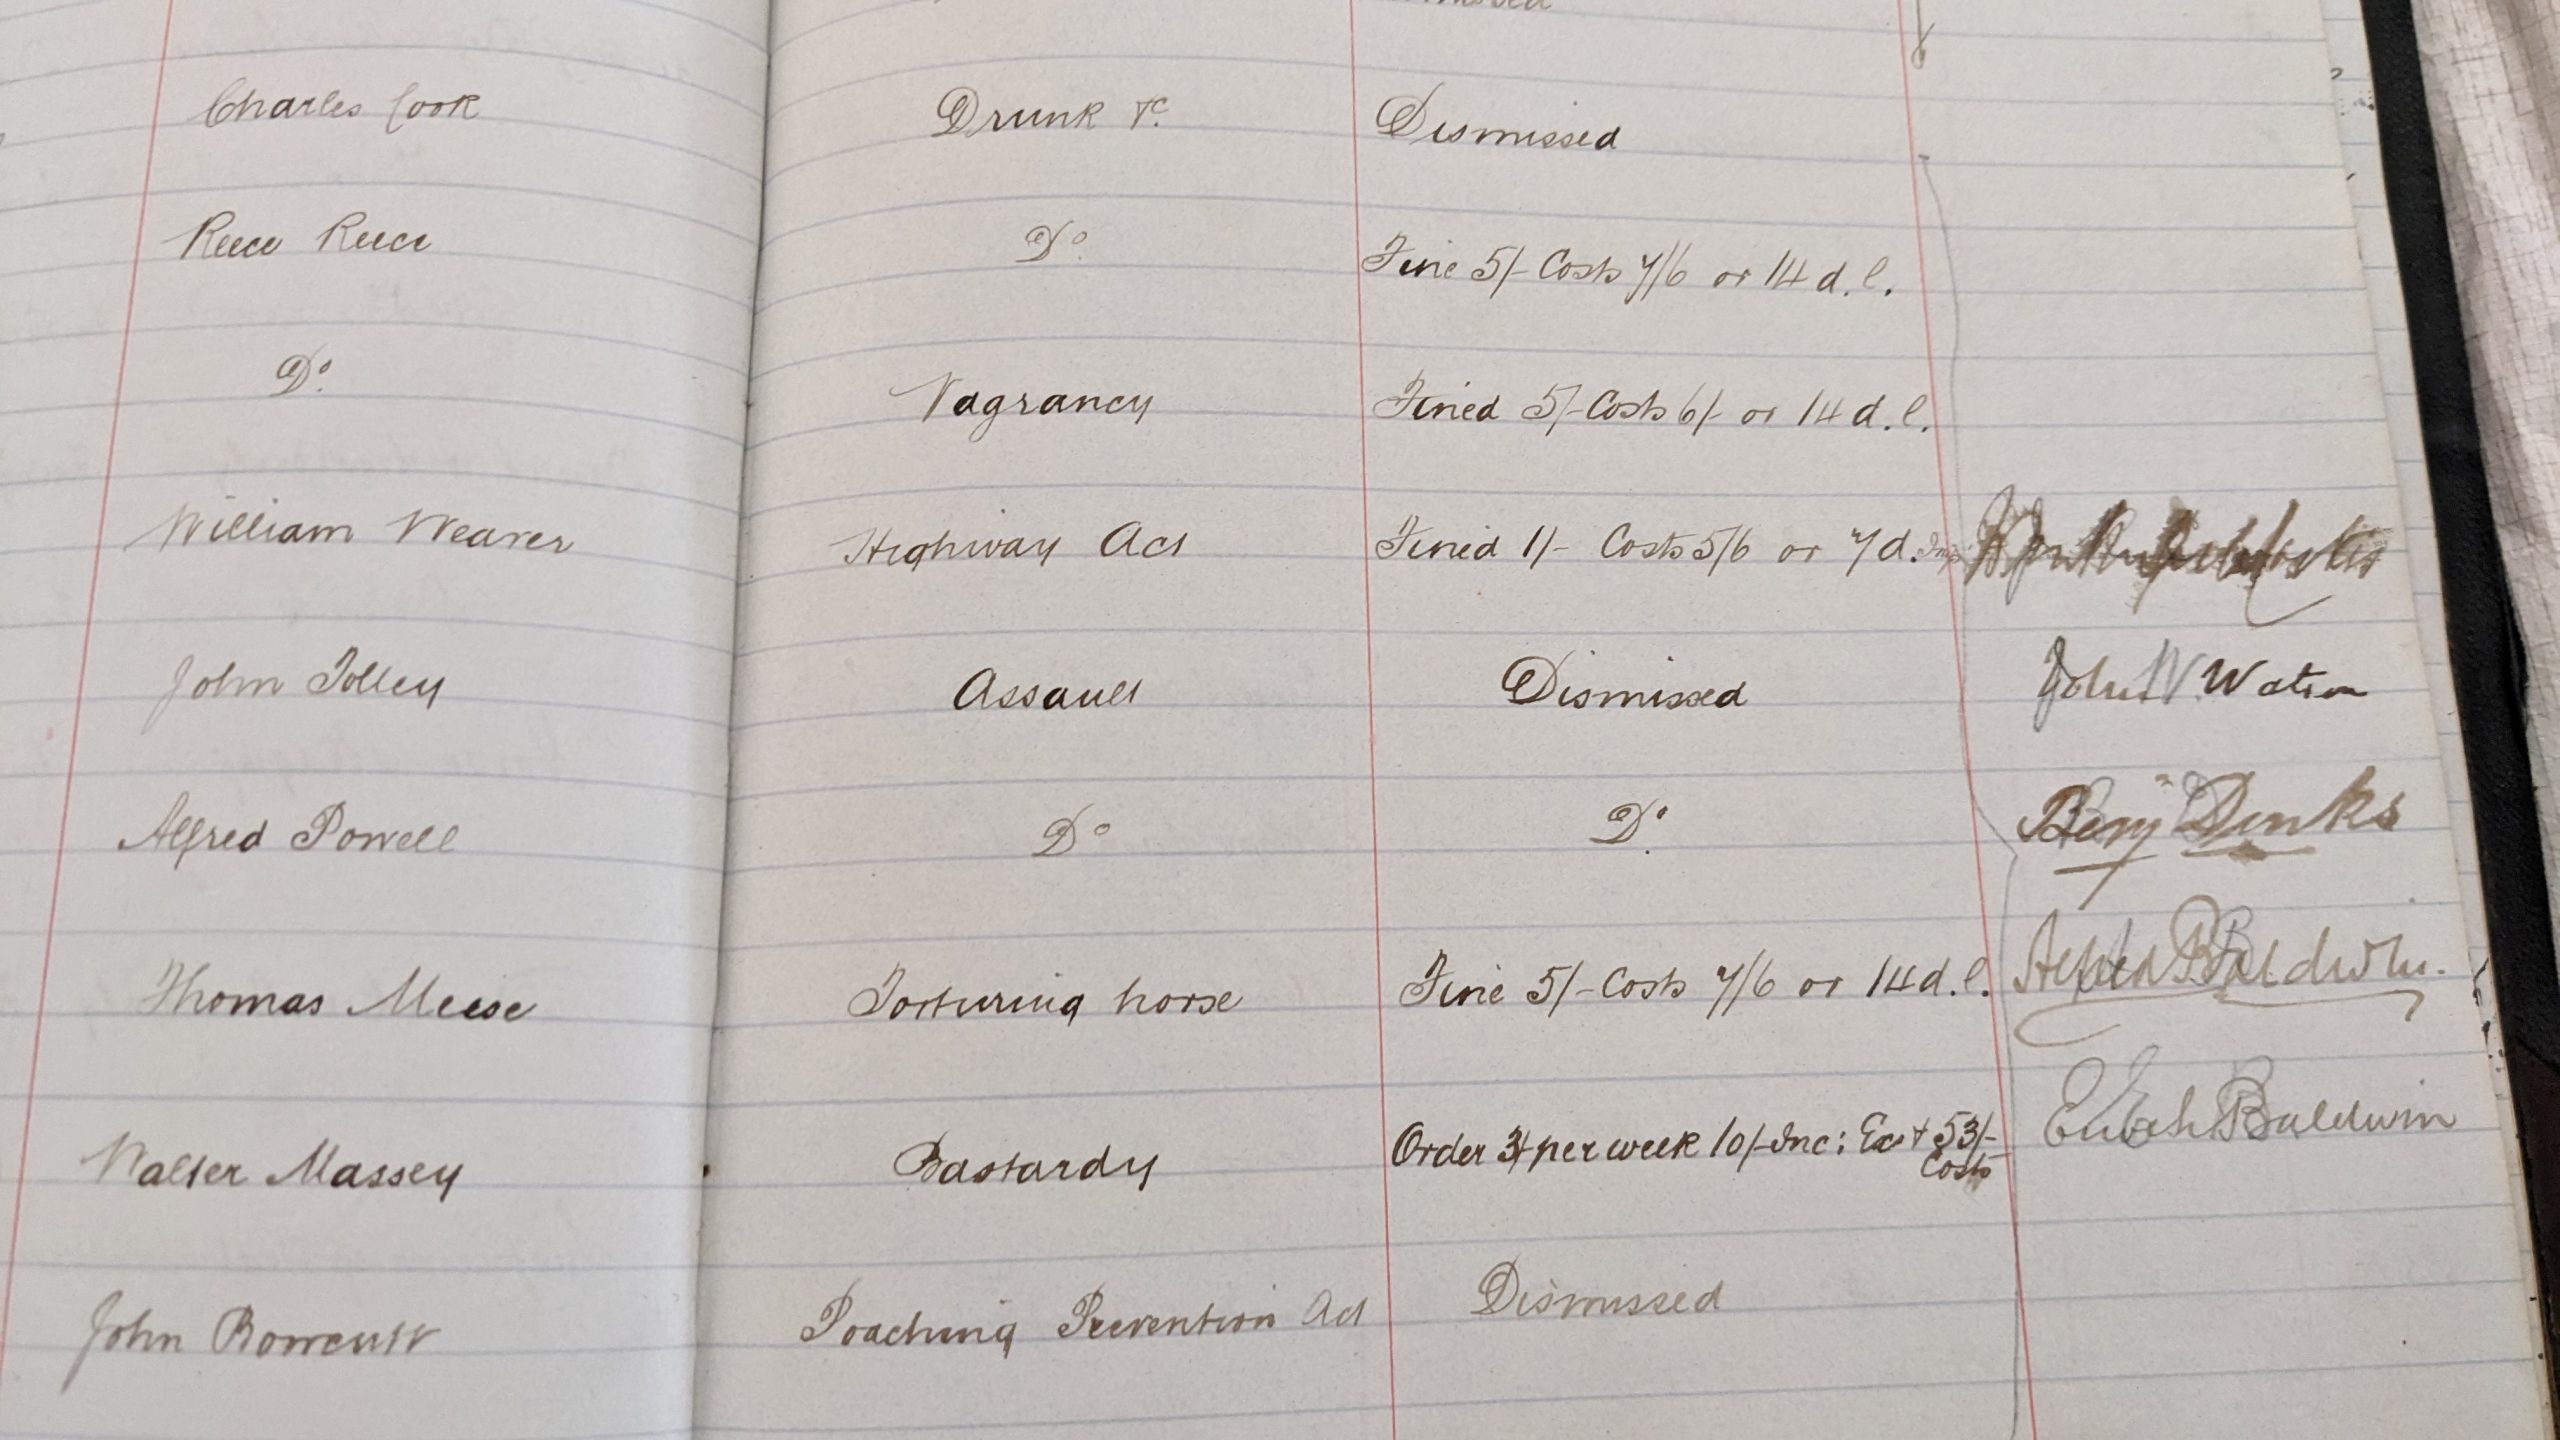 Charles Cook Drunk &c. Dismissed
Reece Reece Do. Fine 5/- Costs 7/6 or 14 d. l.
Do. Vagrancy Fined 5/- Costs 6/- or 14 d. l.
William Weaver Highway Act Fined 1/- Costs 5/6 or 7 d.
John Tolley Assault Dismissed John W. Watson
Alfred Powell Do Do. Benj Danks
Thomas Meese Torturing horse Fine 5/- Costs 7/6 or 14 d. l. Alfred Baldwin.
Walter Massey Bastardy Order 3/- per week 10/- Inc: Ex & 53/- Baldwin
Costs
John Bowcutt Poaching Prevention Act Dismissed